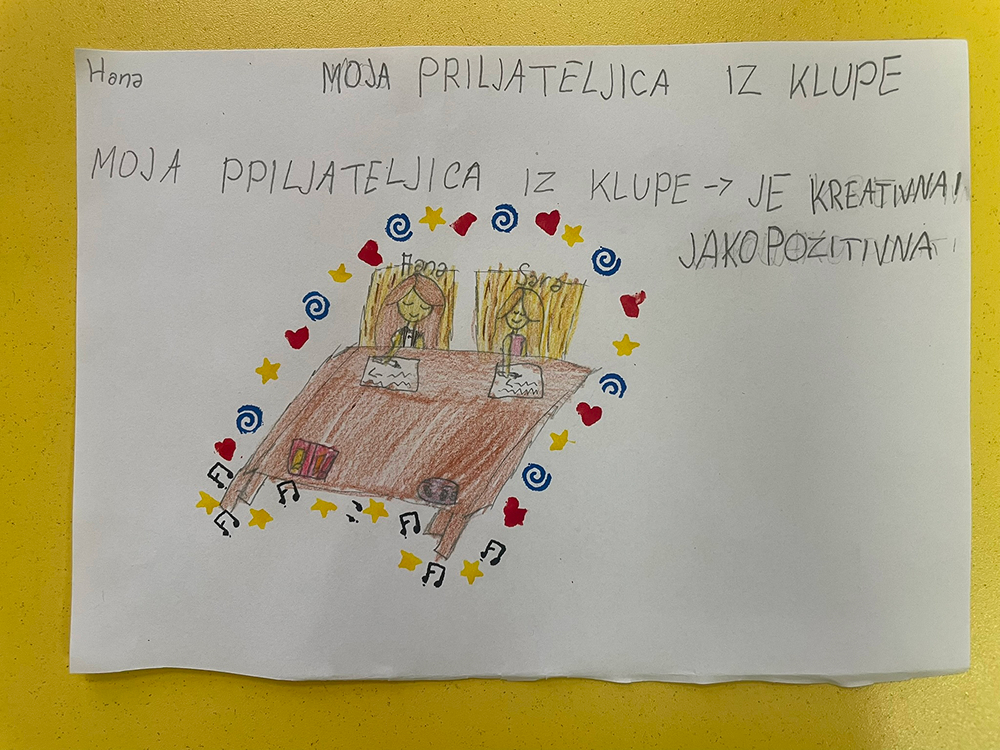 Hana
MOJA PRILJATELJICA IZ KLUPE
MOJA PPILJATELJICA IZ KLUPE -> JE KREATIVNA!
JAKO POZITIVNA
Hana Sara